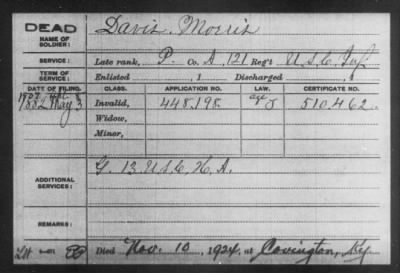 DEAD Davis, Morris
NAME OF SOLDIER:
SERVICE: Late rank, P. Co. A, 121 Reg't U.S.C. Inf
TERM OF SERVICE: Enlisted , 1 Discharged , 1
DATE OF FILING. CLASS. APPLICATION NO. LAW. CERTIFICATE NO.
1882 May 3 Invalid, 448.198. J 510.462.
Widow,
Minor,
ADDITIONAL SERVICES: G. 13. U.S.C.H.A.
REMARKS:
Died Nov. 10, 1924, at Covington, Ky.